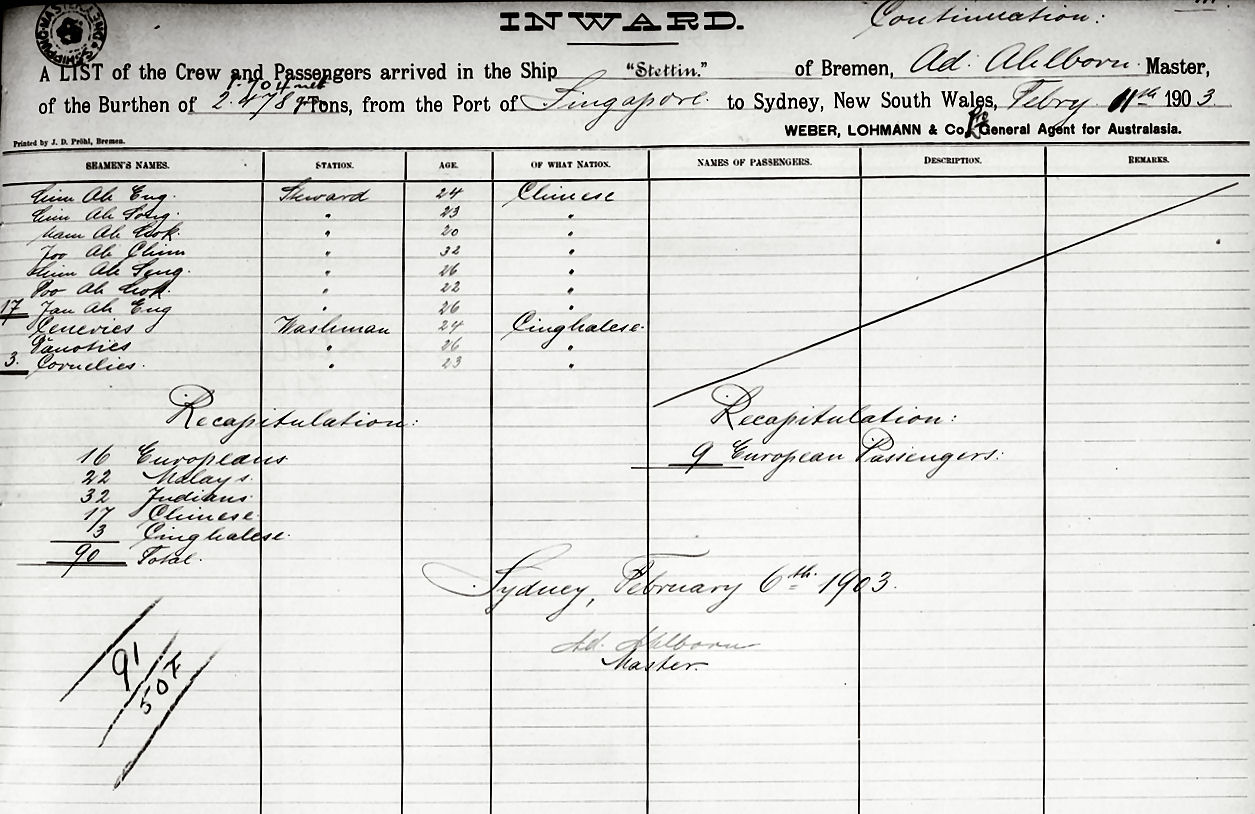 INWARD.
Continuation:
A LIST of the Crew and Passengers arrived in the Ship "Stettin." of Bremen, Ad. Ahlborn Master,
1.704 net
of the Burthen of 2.478 Tons, from the Port of Singapore. to Sydney, New South Wales, Febry. 11th 1903
WEBER, LOHMANN & Co. General Agent for Australasia.
Printed by J. D. Pröhl, Bremen.
SEAMEN'S NAMES. STATION. AGE. OF WHAT NATION. NAMES OF PASSENGERS. DESCRIPTION. REMARKS.
Ah Eng. Steward 24 Chinese
Ah Song. " 23 "
Ah " 20 "
Ah " 32 "
Ah Seng. " 26 "
Ah " 22 "
17 Ah Eng " 26 "
Washman 24 Cinghalese.
" 26 "
3. Cornelies. " 23 "
Recapitulation: Recapitulation:
16 Europeans 9 European Passengers:
22 Malays.
32 Indians
17 Chinese.
3 Cinghalese.
90 Total.
Sydney, February 6th 1903.
Ad. Ahlborn
Master.
91
50F